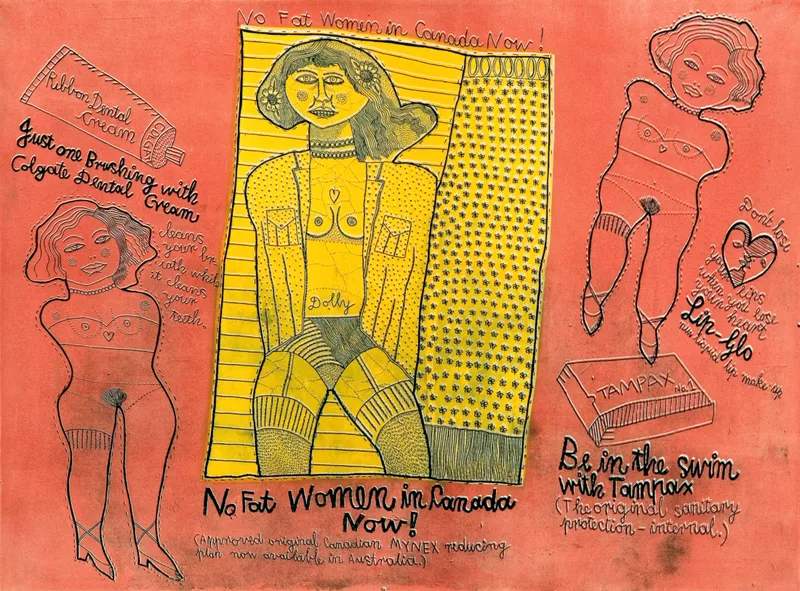 No Fat Women in Canada Now!
Ribbon Dental
Cream
COLGATE
Just one Brushing with
Colgate Dental Cream
cleans
your br
with while
it cleans
your
teeth.
Dolly
No Fat Women in Canada
Now!
(Approved original Canadian MYNEX reducing
plan now available in Australia.)
Don't lose
your lips
when you lose
your heart
Lip-Glo
new liquid lip make up
TAMPAX No. 1
Be in the swim
with Tampax
(The original sanitary
protection - internal.)